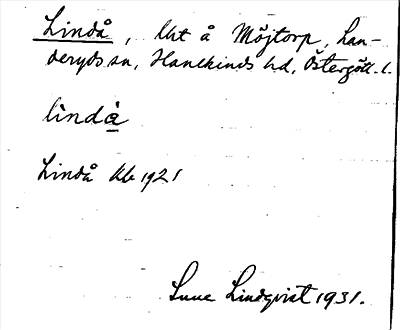 Lindå, lht å Möjtorp, Lan-
deryds sn, Hanekinds hd, Östergötl. l.
lindå
Lindå Kb 1921
Sune Lindqvist 1931.